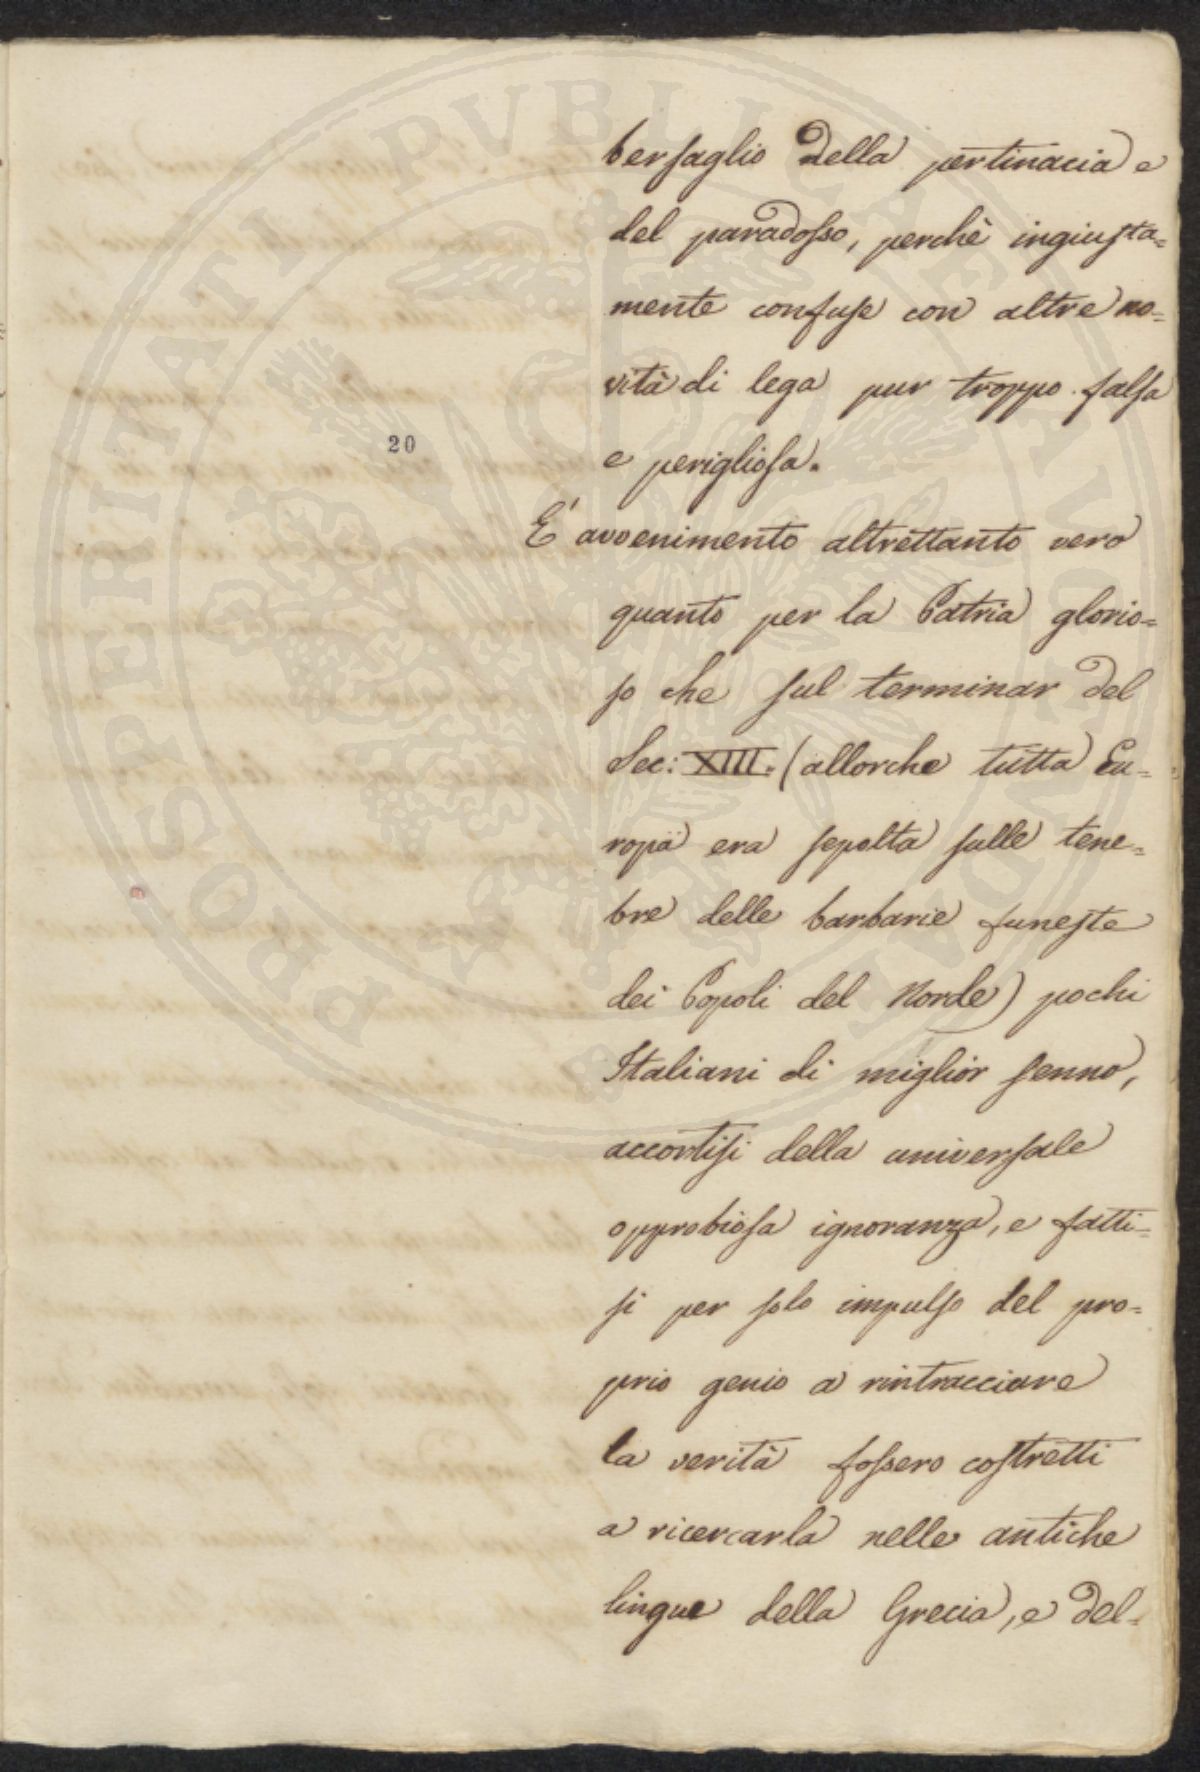 bersaglio della pertinacia e
del paradosso, perchè ingiusta=
mente confuse con altre no=
vità di lega pur troppo falsa
20
e perigliosa.
E' avvenimento altrettanto vero
quanto per la Patria glorio=
so che sul terminar del
Sec: XIII. (allorche tutta Eu=
ropa era sepolta sulle tene=
bre delle barbarie funeste
dei Popoli del Norde) pochi
Italiani di miglior senno,
accortisi della universale
opprobiosa ignoranza, e fatti=
si per solo impulso del pro=
prio genio a rintracciare
la verità fossero costretti
a ricercarla nelle antiche
lingue della Grecia, e del=
PROSPERITATI PVBLICAE